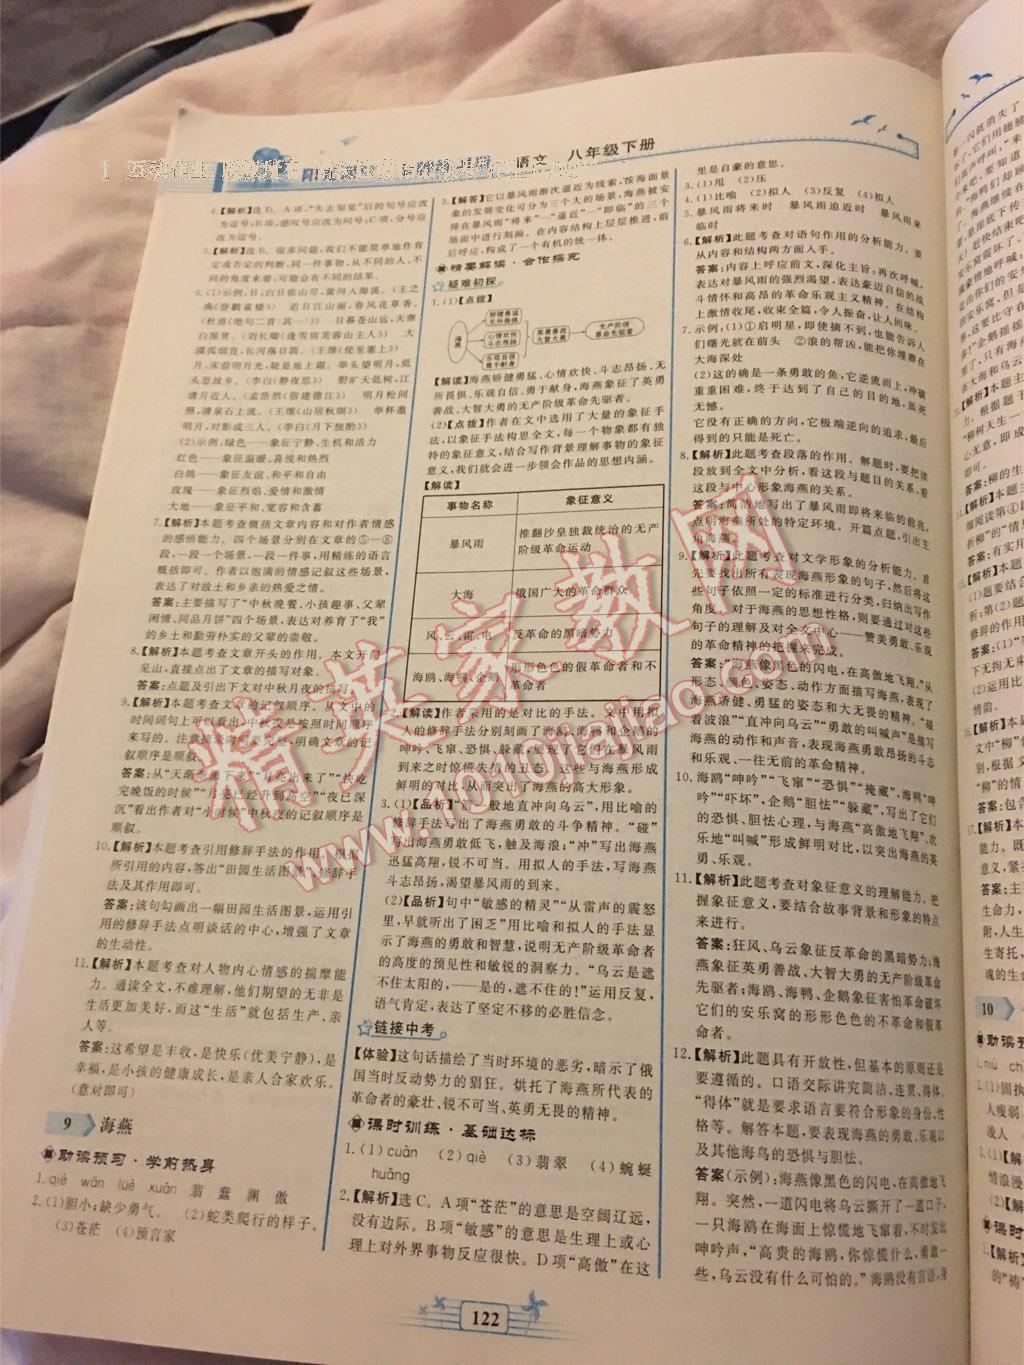 语文 八年级下册
4.【解析】选D。A项,“失去知觉”后的句号应改
为逗号;B项,感叹号应改为问号;C项,分号应
改为逗号。
5.【解析】选B。很多问题,我们不能简单地作肯
定或否定的判断,同一件事物,从不同的人、不
同的角度来看,可能会有不同的结果。
6.(1)示例,日:白日依山尽,黄河入海流。(王之
涣《登鹳雀楼》) 迟日江山丽,春风花草香。
(杜甫《绝句二首(其一)》) 日暮苍山远,天寒
白屋贫。(刘长卿《逢雪宿芙蓉山主人》) 大
漠孤烟直,长河落日圆。(王维《使至塞上》)
月:床前明月光,疑是地上霜。举头望明月,低
头思故乡。(李白《静夜思》) 野旷天低树,江
清月近人。(孟浩然《宿建德江》) 明月松间
照,清泉石上流。(王维《山居秋暝》) 举杯邀
明月,对影成三人。(李白《月下独酌》)
(2)示例:绿色——象征宁静、生机和活力
红色——象征温暖、喜悦和热烈
白鸽——象征友谊、和平和自由
玫瑰——象征热焰、爱情和激情
大地——象征平和、宽容和含蓄
7.【解析】本题考查概括文章内容和对作者情感
的感悟能力。四个场景分别在文章的⑤—⑧
段,一段一个场景,一段一件事,用精练的语言
概括即可。作者以饱满的情感记叙这些场景,
表达了对故土和乡亲的热爱之情。
答案:主要描写了“中秋晚餐、小孩趣事、父辈
闲情、同品月饼”四个场景,表达对养育了“我”
的乡土和勤劳朴实的父辈的崇敬。
8.【解析】本题考查文章开头的作用。本文开门
见山,直接点出了文章的描写对象。
答案:点题及引出下文对中秋月夜的描写。
9.【解析】本题考查文章的记叙顺序。从文中的
时间词句上可以看出,中秋之夜是按照时间顺序
来写的。注意摘录时要完整,明确文章的记
叙顺序是顺叙。
答案:从“天渐渐黑下来”“月亮出来了”“快吃
完晚饭的时候”“月亮已经升到高空”“夜已深
沉”看出作者对“小时候”中秋夜的记叙顺序是
顺叙。
10.【解析】本题考查引用修辞手法的作用。根据
所引用的内容,答出“田园生活图景”、修辞手
法及其作用即可。
答案:该句勾画出一幅田园生活图景,运用引
用的修辞手法点明谈话的中心,增强了文章
的生动性。
11.【解析】本题考查对人物内心情感的揣摩能
力。通读全文,不难理解,他们期望的无非是
生活更加美好,而这“生活”就包括生产、亲
人等。
答案:这希望是丰收,是快乐(优美宁静),是
幸福,是小孩的健康成长,是亲人合家欢乐。
(意对即可)
9 海燕
助读预习·学前热身
1.qiè wān luè xuān 翡 蠢 渊 傲
2.(1)胆小;缺少勇气。 (2)蛇类爬行的样子。
(3)苍茫 (4)预言家
3.【解答】它以暴风雨渐次逼近为线索,按海面景
象的发展变化可分为三个大的场景,海燕被安
排在暴风雨“将来”—“逼近”—“即临”的三个
场面中进行刻画。在内容结构上层层推进,前
后呼应,构成了一个有机的统一体。
精要解读·合作探究
疑难初探
1.(1)【点拨】
海燕
矫健勇猛
无所畏惧
心情欢快
斗志昂扬
乐观自信
勇于献身
英勇善战
大智大勇
无产阶级
革命先驱者
【解读】海燕矫健勇猛、心情欢快、斗志昂扬、无
所畏惧、乐观自信、勇于献身,海燕象征了英勇
善战、大智大勇的无产阶级革命先驱者。
(2)【点拨】作者在文中选用了大量的象征手
法,以象征手法构思全文,每一个物象都有独
特的象征意义,结合写作背景理解事物的象征
意义,我们就会进一步领会作品的思想内涵。
【解读】
事物名称 象征意义
暴风雨 推翻沙皇独裁统治的无产
阶级革命运动
大海 俄国广大的革命群众
风、云、雷、电 反革命的黑暗势力
海鸥、海鸭、企鹅 形形色色的假革命者和不
革命者
2.【解读】作者采用的是对比的手法。文中用拟
人的修辞手法分别刻画了海鸥、海鸭和企鹅的
呻吟、飞窜、恐惧、躲藏,展现了它们在暴风雨
到来之时惊慌失措的丑态。这些与海燕形成
明显的对比,从而突出了海燕的高大形象。
3.(1)【品析】“箭一般地直冲向乌云”,用比喻的
修辞手法写出了海燕的勇敢的斗争精神。“碰”
写出海燕勇敢低飞,触及海浪;“冲”写出海燕
迅猛高翔,锐不可当。用拟人的手法,写海燕
斗志昂扬,渴望暴风雨的到来。
(2)【品析】句中“敏感的精灵”“从雷声的震怒
里,早就听出了困乏”用比喻和拟人的手法显
示了海燕的勇敢和智慧,说明无产阶级革命者
的高度的预见性和敏锐的洞察力。“乌云是遮
不住太阳的,——是的,遮不住的!”运用反复,
语气肯定,表达了坚定不移的必胜信念。
链接中考
【体验】这句话描绘了当时环境的恶劣,暗示了俄
国当时反动势力的猖狂。烘托了海燕所代表的
革命者的豪壮、锐不可当、英勇无畏的精神。
课时训练·基础达标
1.(1)cuàn (2)qiè (3)翡翠 (4)蜿蜒
huǎng
2.【解析】选C。A项“苍茫”的意思是空阔辽远,
没有边际。B项“敏感”的意思是生理上或心
理上对外界事物反应很快。D项“高傲”在这
里是自豪的意思。
3.(1)甩 (2)压
4.(1)比喻 (2)拟人 (3)反复 (4)拟人
5.暴风雨将来时 暴风雨迫近时 暴风雨来
临时
6.【解析】此题考查对语句作用的分析能力。要
从内容和结构两方面入手。
答案:内容上呼应前文,深化主旨;再次呼喊,
表达对暴风雨的强烈渴望,表达豪迈自信的战
斗情怀和高昂的革命乐观主义精神。在结构
上激情收尾,收束全篇,令人振奋,让人回味。
7.示例:(1)①启明星,即使摘不到,也能告诉人
们曙光就在前头 ②浪的帮凶,能把你埋葬在
大海深处
(2)这的确是一条勇敢的鱼,它逆流而上,冲破
重重困难,终于达到了自己的目的地,虽死
无憾。
它没有正确的方向,它极端逆向的追求,最后
得到的只能是死亡。
8.【解析】考查段落的作用。解题时,要把该
段放到全文中分析,看这段与题目的关系,看
这段与中心形象海燕的关系。
答案:简洁地写出了暴风雨即将来临的前兆,
点明海燕所处的特定环境。开篇点题,引出主
角海燕。
9.【解析】此题考查对文学形象的分析能力。首
先要找出所有表现海燕形象的句子,然后将这
些句子依照一定的标准进行分类,归纳出写作
角度。对于海燕的思想性格,则要通过对这些
句子的理解及对全文中心——赞美勇敢、乐观
革命精神的把握来完成。
答案:“海燕像黑色的闪电,在高傲地飞翔。”从
形态、颜色、姿态、动作方面描写海燕,表现了
海燕矫健、勇猛的姿态和大无畏的精神。“碰
着波浪”“直冲向乌云”“勇敢的叫喊声”是描写
海燕的动作和声音,表现海燕勇敢昂扬的斗志
和乐观、一往无前的革命精神。
10.海鸥“呻吟”“飞窜”“恐惧”“掩藏”,海鸭“呻
吟”“吓坏”,企鹅“胆怯”“躲藏”,写出了它们
的恐惧、胆怯心理,与海燕“高傲地飞翔”、欢
乐地“叫喊”形成鲜明对比,以突出海燕的英
勇、乐观。
11.【解析】此题考查对象征意义的理解能力。把
握象征意义,要结合故事背景和形象的特点
来进行。
答案:狂风、乌云象征反革命的黑暗势力;海
燕象征英勇善战、大智大勇的无产阶级革命
先驱者;海鸥、海鸭、企鹅象征害怕革命破坏
它们的安乐窝的形形色色的不革命和假革
命者。
12.【解析】此题具有开放性,但基本的原则是
要遵循的。口语交际讲究简洁、连贯、得体。
“得体”就是要求语言要符合形象的身份、性
格等。解答本题,要表现海燕的勇敢、乐观以
及其他海鸟的恐惧与胆怯。
答案(示例):海燕像黑色的闪电,在高傲地飞
翔。突然,一道闪电将乌云撕开了一道口子,
一只海鸥在海面上惊慌地飞窜着,不时发出
呻吟声,“高贵的海鸥,你惊慌什么,勇敢一
些,乌云没有什么可怕的。”海鸥没有言语,身
122
精英家教网
www.1010jiajiao.com